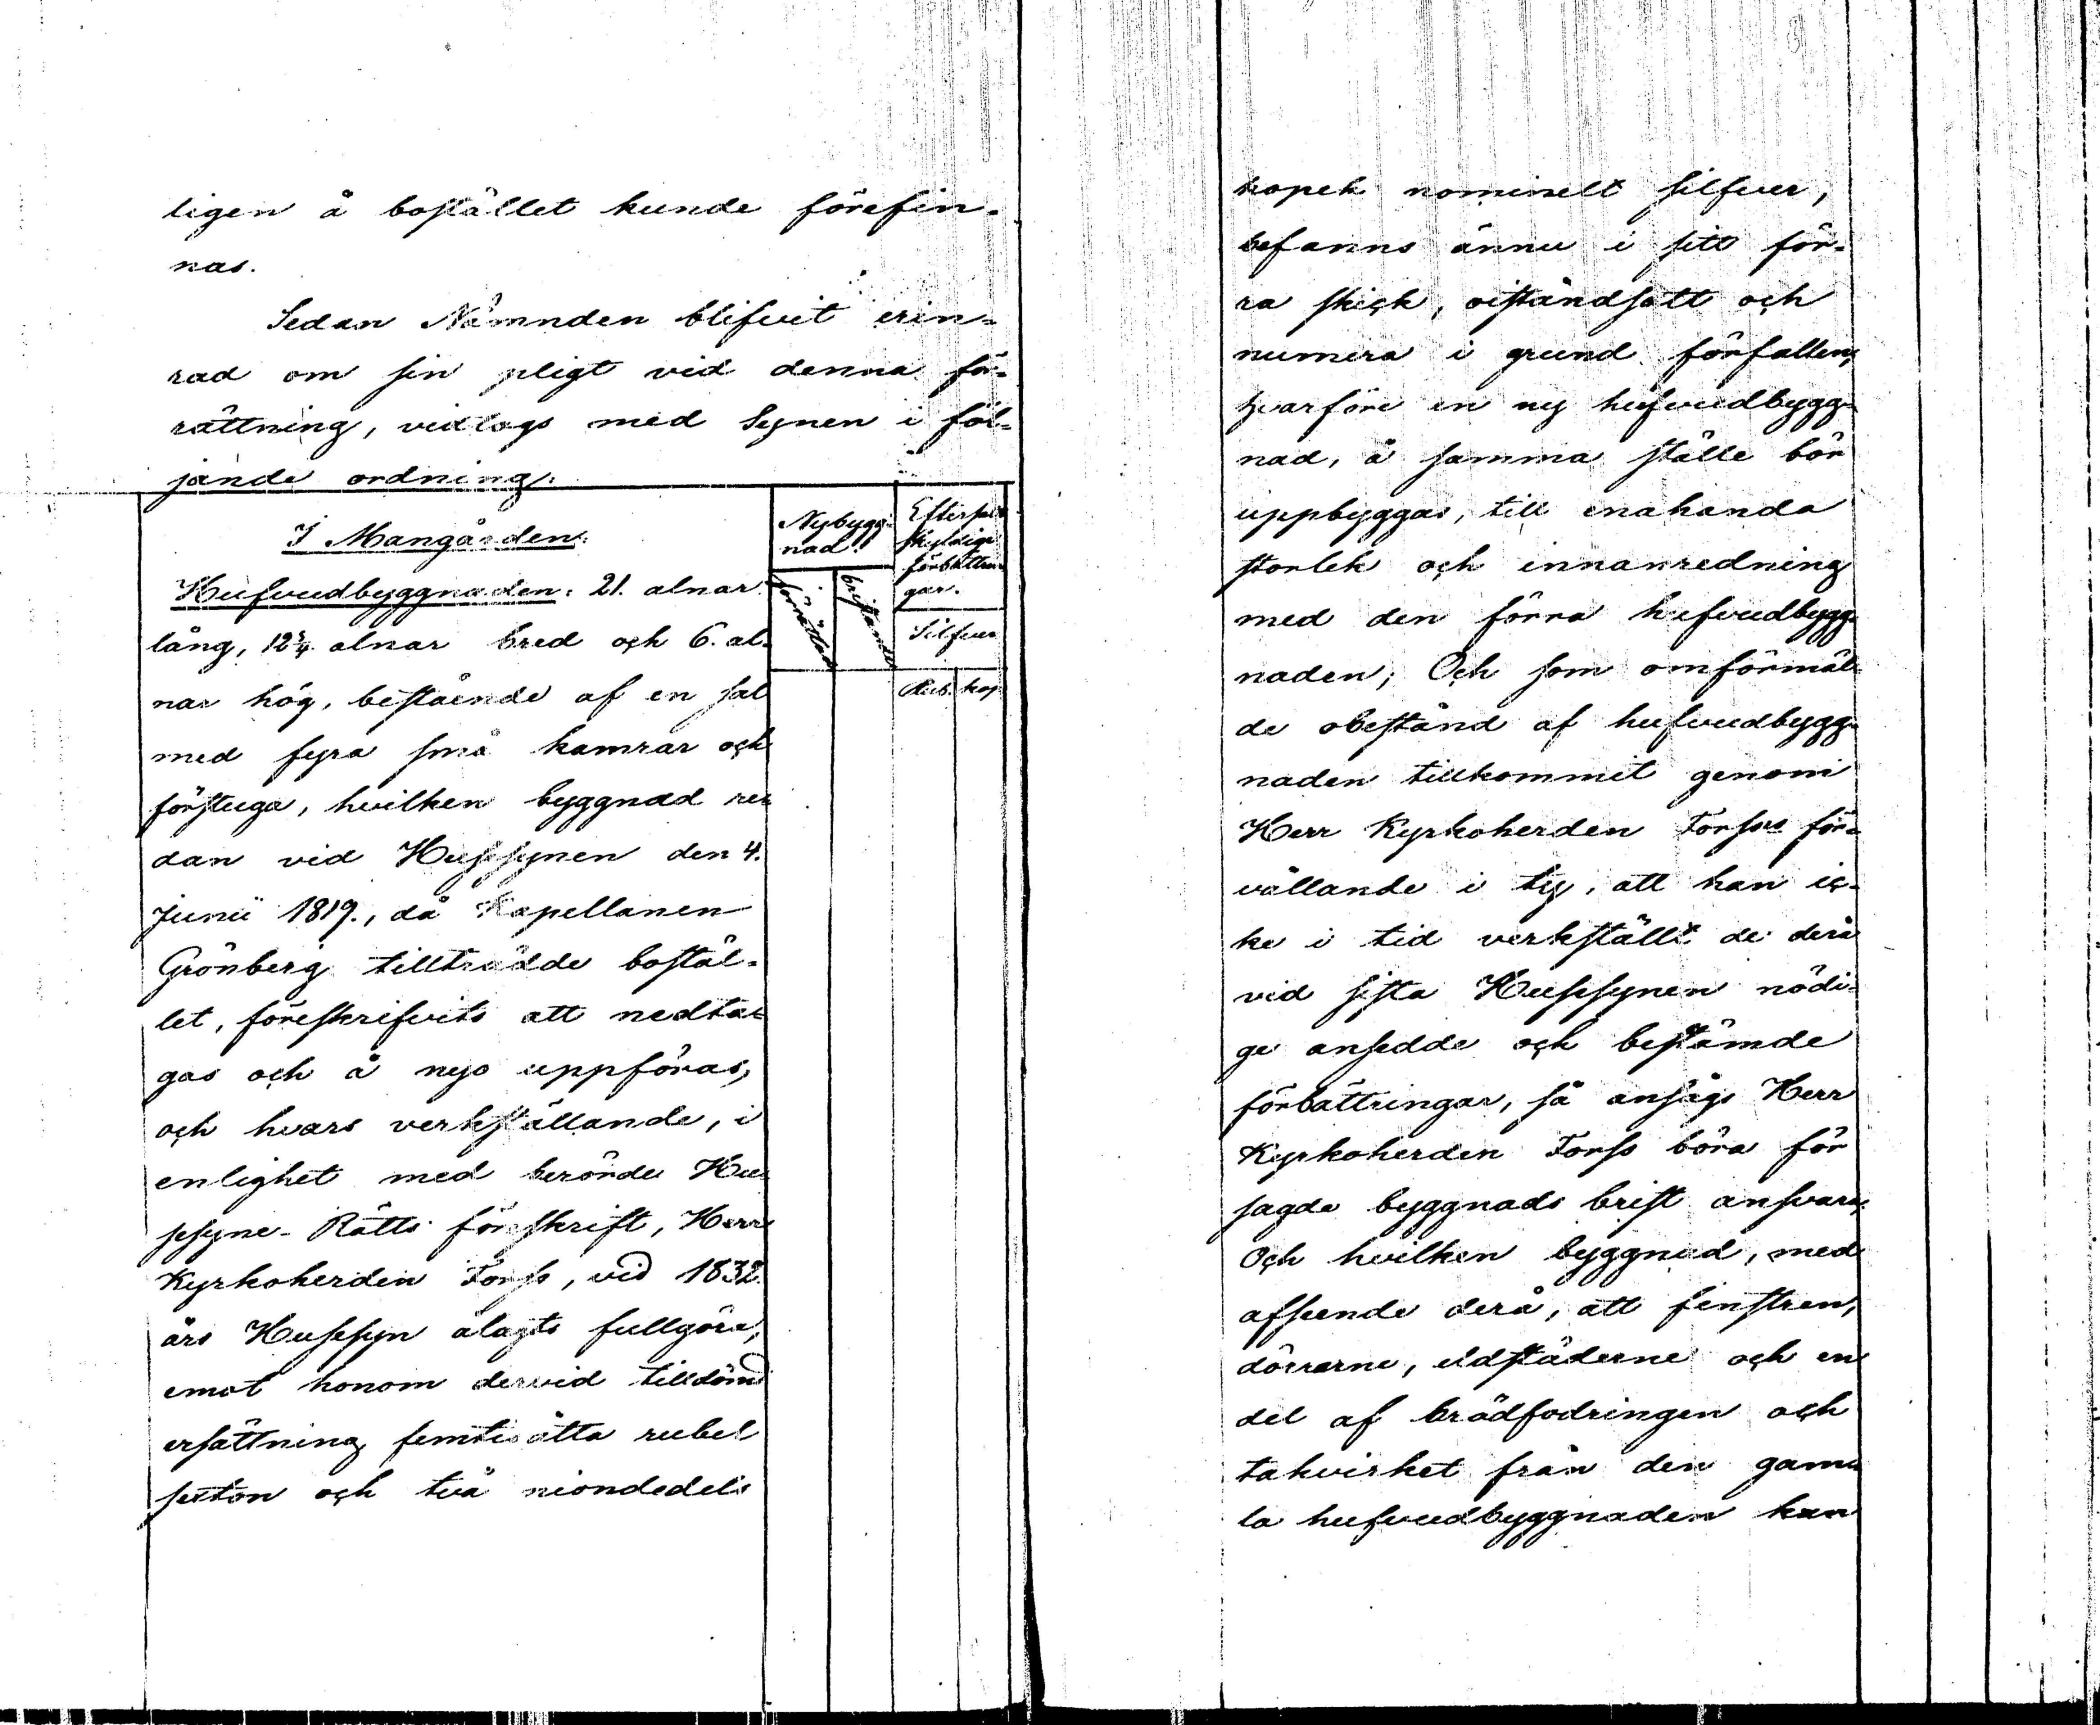 ligen å bostället kunde förefin-
nas.
Sedan Nämnden blifvit erin-
rad om sin pligt vid denna för-
rättning, vidtogs med Synen i föl-
jande ordning.
I Mangården.
Nybygg-
nad.
förrättad
bristande
Efter
skyldige
förbättrin-
gar.
Silfver
Rub. kop
Hufvudbyggnaden. 21. alnar
lång, 12¾ alnar bred och 6. al-
nar hög, bestående af en sal
med fyra små kamrar och
förstuga, hvilken byggnad re-
dan vid Hussynen den 4.
Junii 1819., då Kapellanen
Grönberg tillträdde bostäl-
let, föreskrifvits att nedta-
gas och å nyo uppföras,
och hvars verkställande, i
enlighet med berörde Hu-
sesyne-Rätts föreskrift, Herr
Kyrkoherden Forss, vid 1832
års Husesyn ålagts fullgöra,
emot honom dervid tilldömd
ersättning femtioåtta rubel
sexton och två niondedels
kopek nominelt silfver,
befanns ännu i sitt för-
ra skick, oiståndsatt och
numera i grund förfallen,
hvarföre en ny hufvudbygg-
nad, å samma ställe bör
uppbyggas, till enahanda
storlek och innanredning
med den förra hufvudbygg-
naden; Och som omförmäl-
de obestånd af hufvudbygg-
naden tillkommit genom
Herr Kyrkoherden Forsses för-
vållande i ty, att han ic-
ke i tid verkställt de derå
vid sista Husesynen nödi-
ge ansedde och bestämde
förbättringar, så ansågs Herr
Kyrkoherden Forss böra för
sagde byggnads brist ansvara,
Och hvilken byggnad, med
afseende derå, att fenstren,
dörrarne, eldstäderne och en
del af brädfodringen och
takvirket från den gam-
la hufvudbyggnaden kan